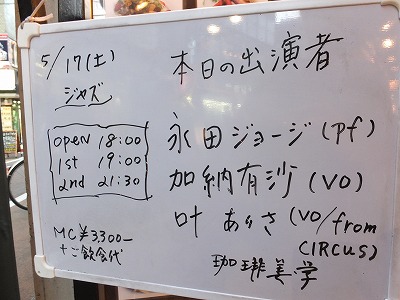 5/17(土)
ジャズ
本日の出演者
open 18:00
1st 19:00
2nd 21:30
永田ジョージ(pf)
加納有沙(vo)
叶 ありさ(vo/from
CIRCUS)
MC¥3,300-
+ご飲食代
珈琲美学